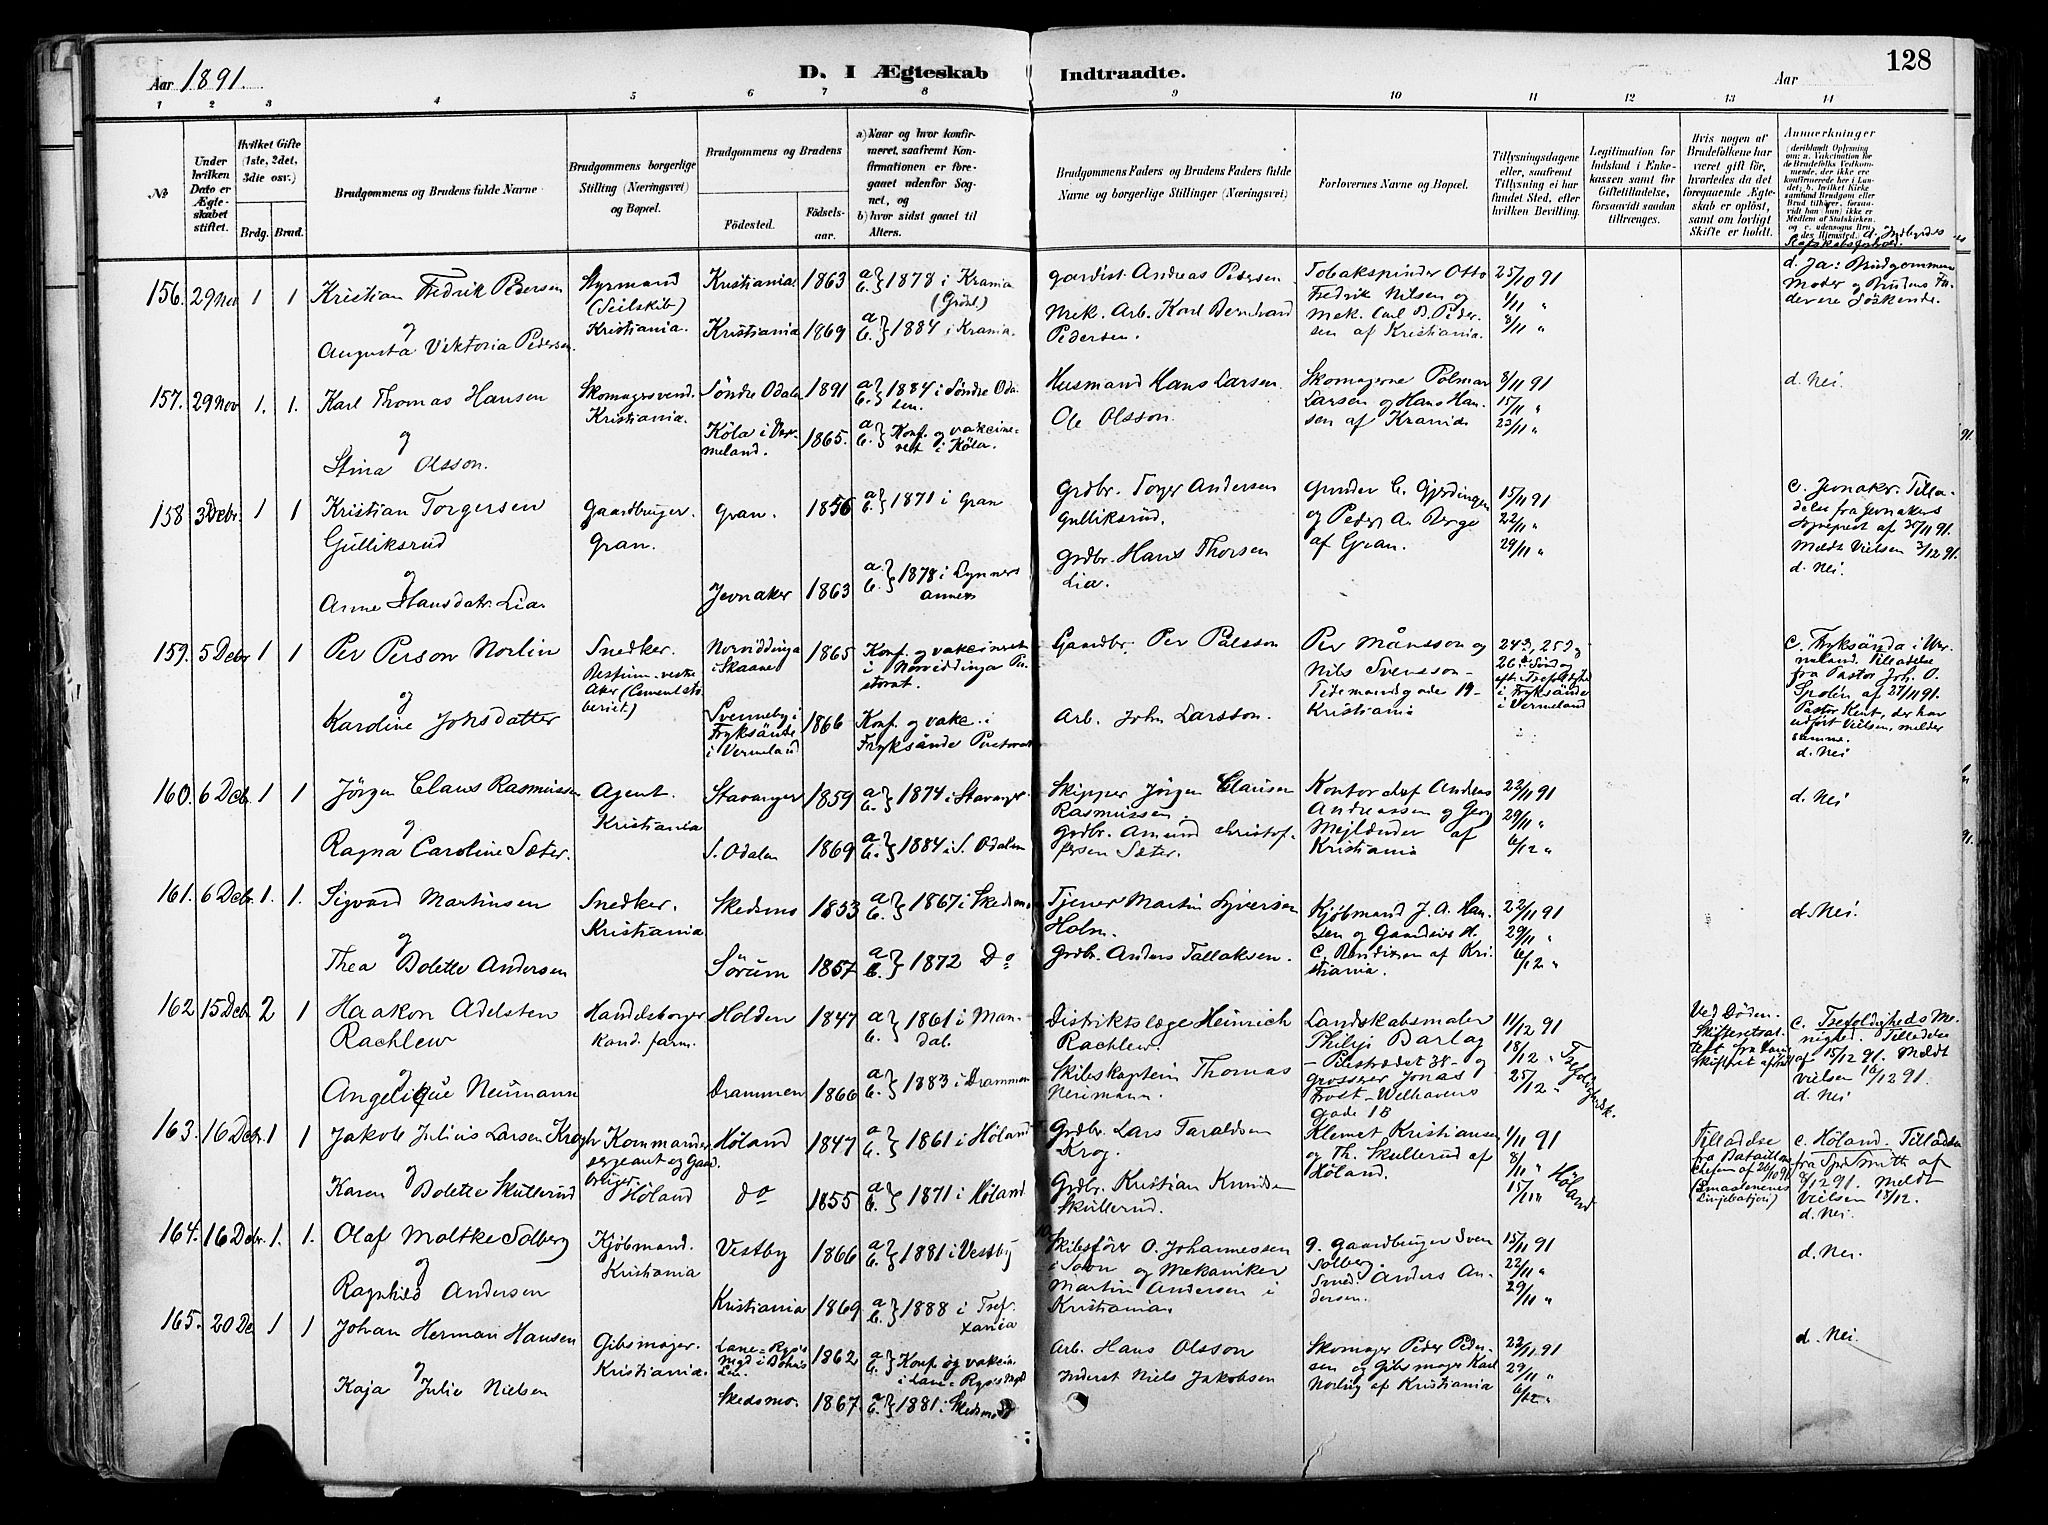 Aar 1891.
D. I Ægteskab Indtraadte.
Aar
128
1 2 3 4 5 6 7 8 9 10 11 12 13 14
No
Under hvilken Dato er Ægteskabet stiftet.
Hvilket Gifte (1ste, 2det, 3die osv.)
Brdg. Brud.
Brudgommens og Brudens fulde Navne
Brudgommens borgerlige Stilling (Næringsvei) og Bopæl.
Brudgommens og Brudens
Födested.
Födselsaar.
a) Naar og hvor konfirmeret, saafremt Konfirmationen er foregaaet udenfor Sognet, og
b) hvor sidst gaaet til Alters.
Brudgommens Faders og Brudens Faders fulde Navne og borgerlige Stillinger (Næringsvei)
Forlovernes Navne og Bopæl.
Tillysningsdagene eller, saafremt Tillysning ei har fundet Sted, efter hvilken Bevilling.
Legitimation for Indskud i Enkekassen samt for Giftetilladelse, forsaavidt saadan tiltrænges.
Hvis nogen af Brudefolkene har været gift før, hvorledes da det foregaaende Ægteskab er oplöst, samt om lovligt Skifte er holdt.
Anmerkninger (deriblandt Oplysning om: a. Vakcination for de Brudefolks Vedkommende, der ikke ere konfirmerede her i Landet; b. hvilket Kirkesamfund Brudgom eller Brud tilhører, forsaavidt han (hun) ikke er Medlem af Statskirken, og c. udensogns Brudes Hjemsted.
156. 29 Nov 1 1 Kristian Fredrik Pedersen
og
Augusta Viktoria Pedersen.
Styrmand
(Seilskib)
Kristiania.
Kristiania 1863 a. b. } 1878 i Krania
Kristiania 1869 a b } 1884 i Krania.
Gardist. Andreas Pedersen
Mek. Arb. Karl Bernhard
Pedersen.
Tobakspinder Otto
Fredrik Nilsen og
Mek. Carl B. Peder-
sen af Kristiania.
25/10 91
1/11 "
8/11 "
d. Ja: Brudgommens
Moder og Brudens Fa-
der ere Söskende.
157. 29 Nov 1. 1. Karl Thomas Hansen
og
Stina Olsson.
Skomagersvend.
Kristiania.
Söndre Odalen 1891 a b } 1884 i Söndre Oda-
len.
Köla i Ver-
meland. 1865. a b } Konf. og vakcine-
ret i Köla.
Husmand Hans Larsen
Ole Olsson.
Skomagerne Polmar
Larsen og Hans Han-
sen af Krania
8/11 91
15/11 "
23/11 "
d. Nei.
158 3 Debr. 1 1 Kristian Torgersen
Gulliksrud
og
Anne Hansdatr. Lia.
Gaardbruger.
Gran.
Gran. 1856 a b } 1871 i Gran
Jevnaker 1863 a. b. } 1878 i Lynners
annex
Grdbr. Torger Andersen
Gulliksrud.
Grdbr. Hans Thorsen
Lia.
Gunder C. Gjerdingen
og Peder A. Berge
af Gran.
15/11 91
22/11 "
29/11 "
c. Jevnaker. Tilla-
delse fra Jevnakers
Sognepræst af 30/11 91.
Meldt Vielsen 3/12 91.
d. Nei.
159. 5 Debr 1 1 Per Person Norlin
og
Karoline Johsdatter
Snedker.
Bestum vestre
Aker (Cementstö-
beriet)
Norviddinga
i Skaane 1865 Konf. og vakcineret
i Norviddinga Pa-
storat.
Svenneby i
Fryksände
i Vermeland 1866 Konf. og vakc. i
Fryksände Pastorat
Gaardbr. Per Pålsson
Arb. John Larsson.
Per Månsson og
Nils Svensson -
Tidemandsgade 19 -
Kristiania
24de, 25de og
26de Söndag
eft. Trefoldighed
i Fryksände
i Vermeland
c. Fryksända i Ver-
meland. Tilladelse
fra Pastor Joh. O.
Spolén af 27/11 91.
Pastor Kent, der har
udført Vielsen, melder
samme.
d. Nei
160. 6 Debr. 1 1 Jörgen Claus Rasmussen
og
Ragna Caroline Sæter.
Agent.
Kristiania
Stavanger 1859 a b } 1874 i Stavanger.
S. Odalen 1869 a b. } 1884 i S. Odalen
Skipper Jörgen Clausen
Rasmussen.
Grdbr. Amund Christof-
fersen Sæter.
Kontorchef Anders
Andreassen og Georg
Mejlænder af
Kristiania
22/11 91
29/11 "
6/12 "
d. Nei
161. 6 Debr. 1. 1. Sigvard Martinsen
og
Thea Bolette Andersen
Snedker.
Kristiania
Skedsmo 1853 a b. } 1867 i Skedsmo
Sörum 1857 a b. } 1872 Do
Tjener Martin Syversen
Holm.
Grdbr. Anders Tallaksen.
Kjöbmand J. A. Han-
sen og Gaardeier H.
C. Bendixen af Kri-
stiania.
22/11 91
29/11 "
6/12 "
d. Nei.
162 15 Debr 2 1 Haakon Adelsten
Rachlew
og
Angelique Neumann
Handelsborger
Kand. farm.
Holden 1847 a b. } 1861 i Man-
dal.
Drammen 1866 a b. } 1883 i Drammen
Distriktslæge Heinrich
Rachlew.
Skibskaptein Thomas
Neumann.
Landskabsmaler
Philip Barlag
- Pilestrædet 38 - og
grosserer Jonas
Frost - Welhavens
gade 1B
11/12 91
18/12 "
25/12 " Trefoldighedsk.
Ved Döden.
Skifteretsat-
test fra
c. Trefoldigheds Me-
nighed. Tilladelse
af 15/12 91. Meldt
Vielsen 16/12 91.
d. Nei
163. 16 Debr. 1 1 Jakob Julius Larsen Krogh
og
Karen Bolette Skullerud
Kommander-
sergeant og Gaard-
bruger.
Höland
Höland 1847 a b. } 1861 i Höland
do 1855 a b. } 1871 i Höland
Grdbr. Lars Taraldsen
Krog.
Grdbr. Kristian Knudsen
Skullerud.
Klemet Kristiansen
og Th. Skullerud af
Höland.
1/11 91
8/11 "
15/11 " Höland
Tilladelse
fra Bataillons
chefen af 26/10 91
(Smaalenenes
Linjebatjon)
c. Höland. Tilladelse
fra Spr. Smith af
8/12 91. Meldt
Vielsen 18/12.
d. Nei.
164. 16 Debr. 1. 1. Olaf Moltke Solberg
og
Ragnhild Andersen
Kjöbmand.
Kristiania
Vestby 1866 a b. } 1881 i Vestby
Kristiania 1869. a b } 1888 i Tref.
xania
Skibsförer O. Johannessen
i Soon og Mekaniker
Martin Andersen i
Kristiania.
g. Gaardbruger Sven
Solberg.
Smed. Anders An-
dersen.
15/11 91
22/11 "
29/11 "
d. Nei.
165. 20 De 1 1 Johan Herman Hansen
og
Kaja Julie Nielsen
Gibsmager.
Kristiania.
Lane-Ryrs
i Bohus
Len. 1862 a b. } Konf. og vakcin.
i Lane-Ryrs
Skedsmo. 1867. a b. } 1881 i Skedsmo
Arb. Hans Olsson
Inderst Niels Jakobsen
Skomager Peder Peder-
sen og Gibsmager Karl
Norling af Kristiania
22/11 91
29/11 "
6/12 "
d. Nei.